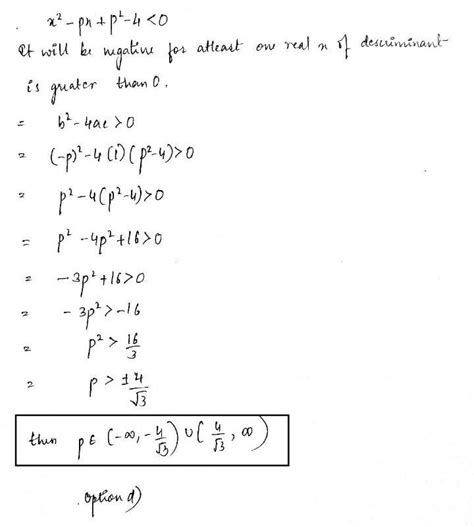 x² - px + p² - 4 < 0
It will be negative for atleast one real x of descriminant
is greater than 0.
= b² - 4ac > 0
= (-p)² - 4(1)(p²-4) > 0
= p² - 4(p²-4) > 0
= p² - 4p² + 16 > 0
= -3p² + 16 > 0
= -3p² > -16
= p² > 16/3
= p > ±4/√3
then p ∈ (-∞, -4/√3) ∪ (4/√3, ∞)
option d)